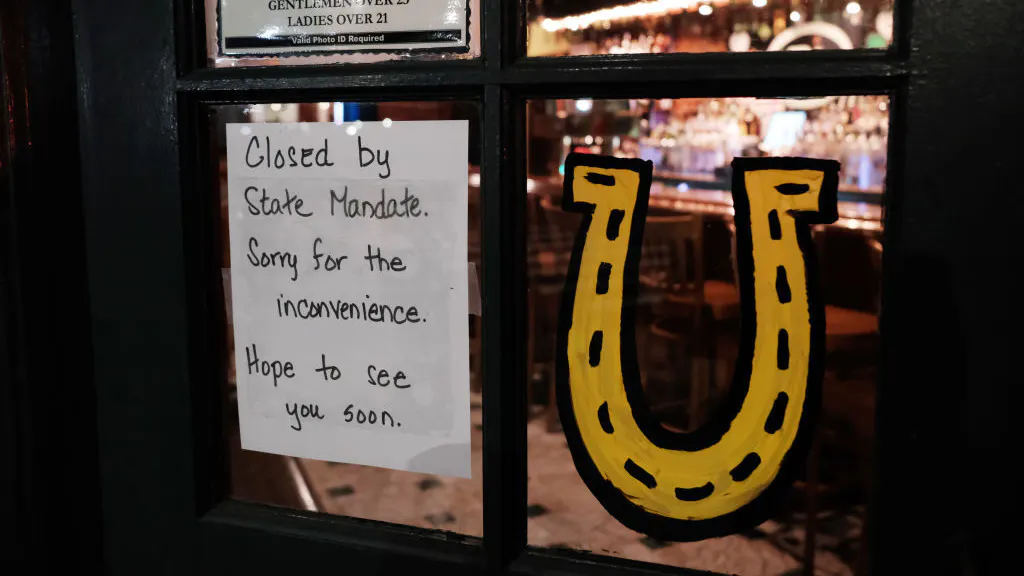 GENTLEMEN OVER 25
LADIES OVER 21
Valid Photo ID Required
Closed by
State Mandate.
Sorry for the
inconvenience.
Hope to see
you soon.